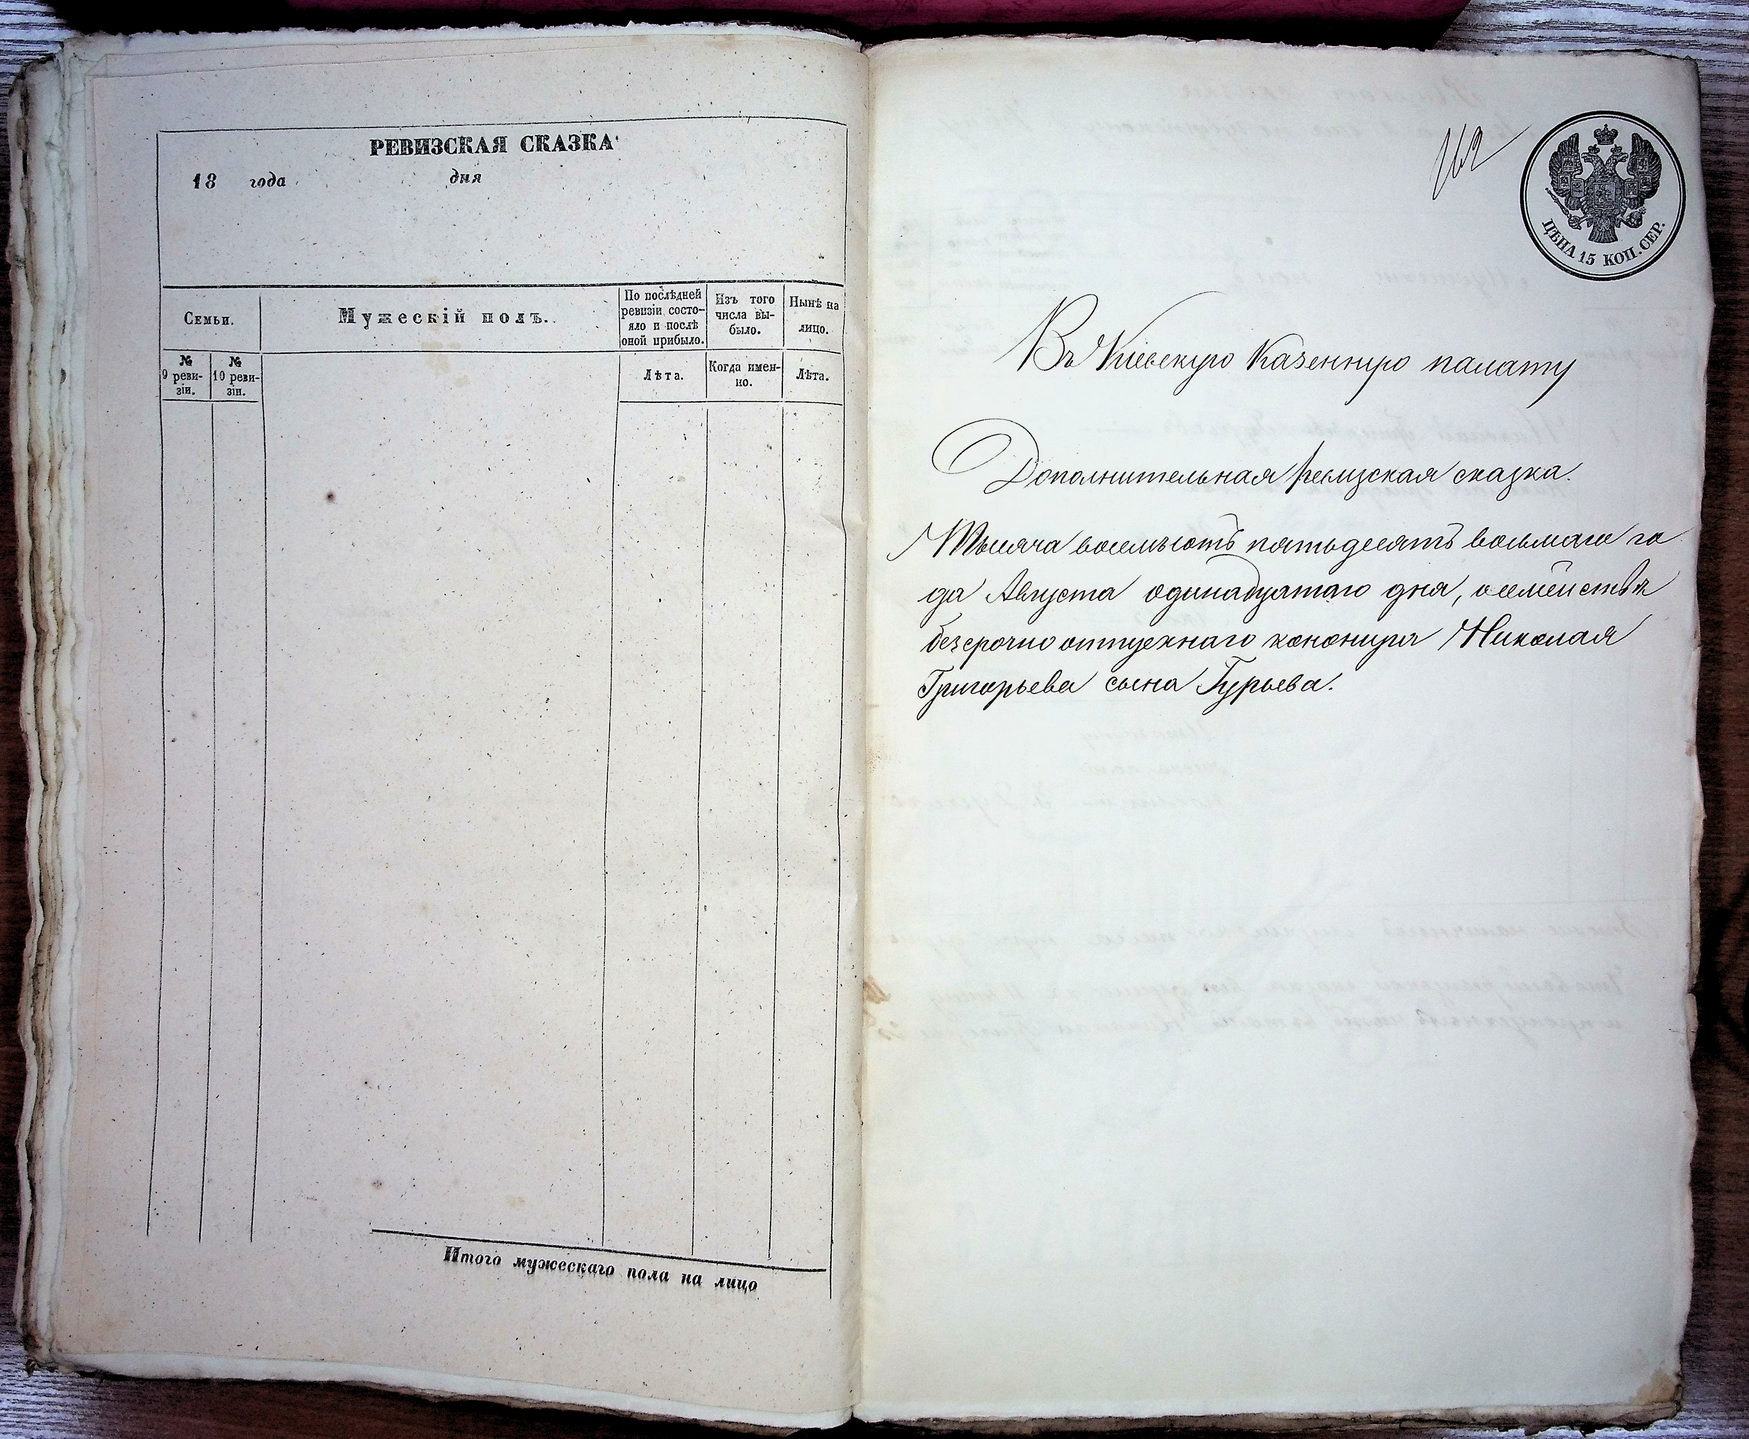 РЕВИЗСКАЯ СКАЗКА
18 года дня
Семьи.
Мужескій полъ.
По послѣдней
ревизіи состо-
яло и послѣ
оной прибыло.
Изъ того
числа вы-
было.
Нынѣ на
лицо.
№
9 реви-
зіи.
№
10 реви-
зіи.
Лѣта.
Когда имен-
но.
Лѣта.
Итого мужескаго пола на лицо
162
ЦѢНА 15 КОП. СЕР.
Въ Кіевскую Казенную палату
Дополнительная ревизская сказка.
Тысяча восемьсотъ пятьдесятъ восьмаго го
да Августа одинадцатаго дня, о семействѣ
безсрочно отпускнаго канонира Николая
Григорьева сына Гурьева.